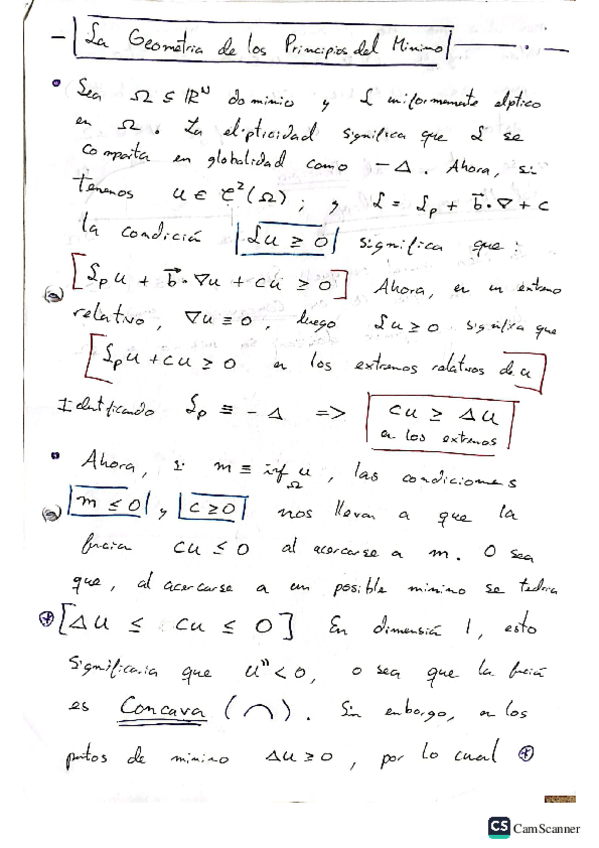 La Geometria de los Principios del Minimo
• Sea Ω ⊆ ℝᴺ dominio y ℒ uniformemente elptico
en Ω. La elipticidad significa que ℒ se
comporta en globalidad como -Δ. Ahora, si
tenemos u ∈ C²(Ω); y ℒ = ℒp + b⃗·∇ + c
la condición ℒu ≥ 0 significa que:
[ℒp u + b⃗·∇u + cu ≥ 0] Ahora, en un extremo
relativo, ∇u ≡ 0, luego ℒu ≥ 0 significa que
[ℒp u + cu ≥ 0 en los extremos relativos de u]
Identificando ℒp ≡ -Δ => cu ≥ Δu
en los extremos
• Ahora, si m ≡ inf u, las condiciones
Ω
m ≤ 0 y c ≥ 0 nos llevan a que la
función cu ≤ 0 al acercarse a m. O sea
que, al acercarse a un posible minimo se tendria
⊛ [Δu ≤ cu ≤ 0] En dimensión 1, esto
significaria que u'' < 0, o sea que la función
es Concava (⌒). Sin embargo, en los
puntos de minimo Δu ≥ 0, por lo cual ⊛
CS CamScanner